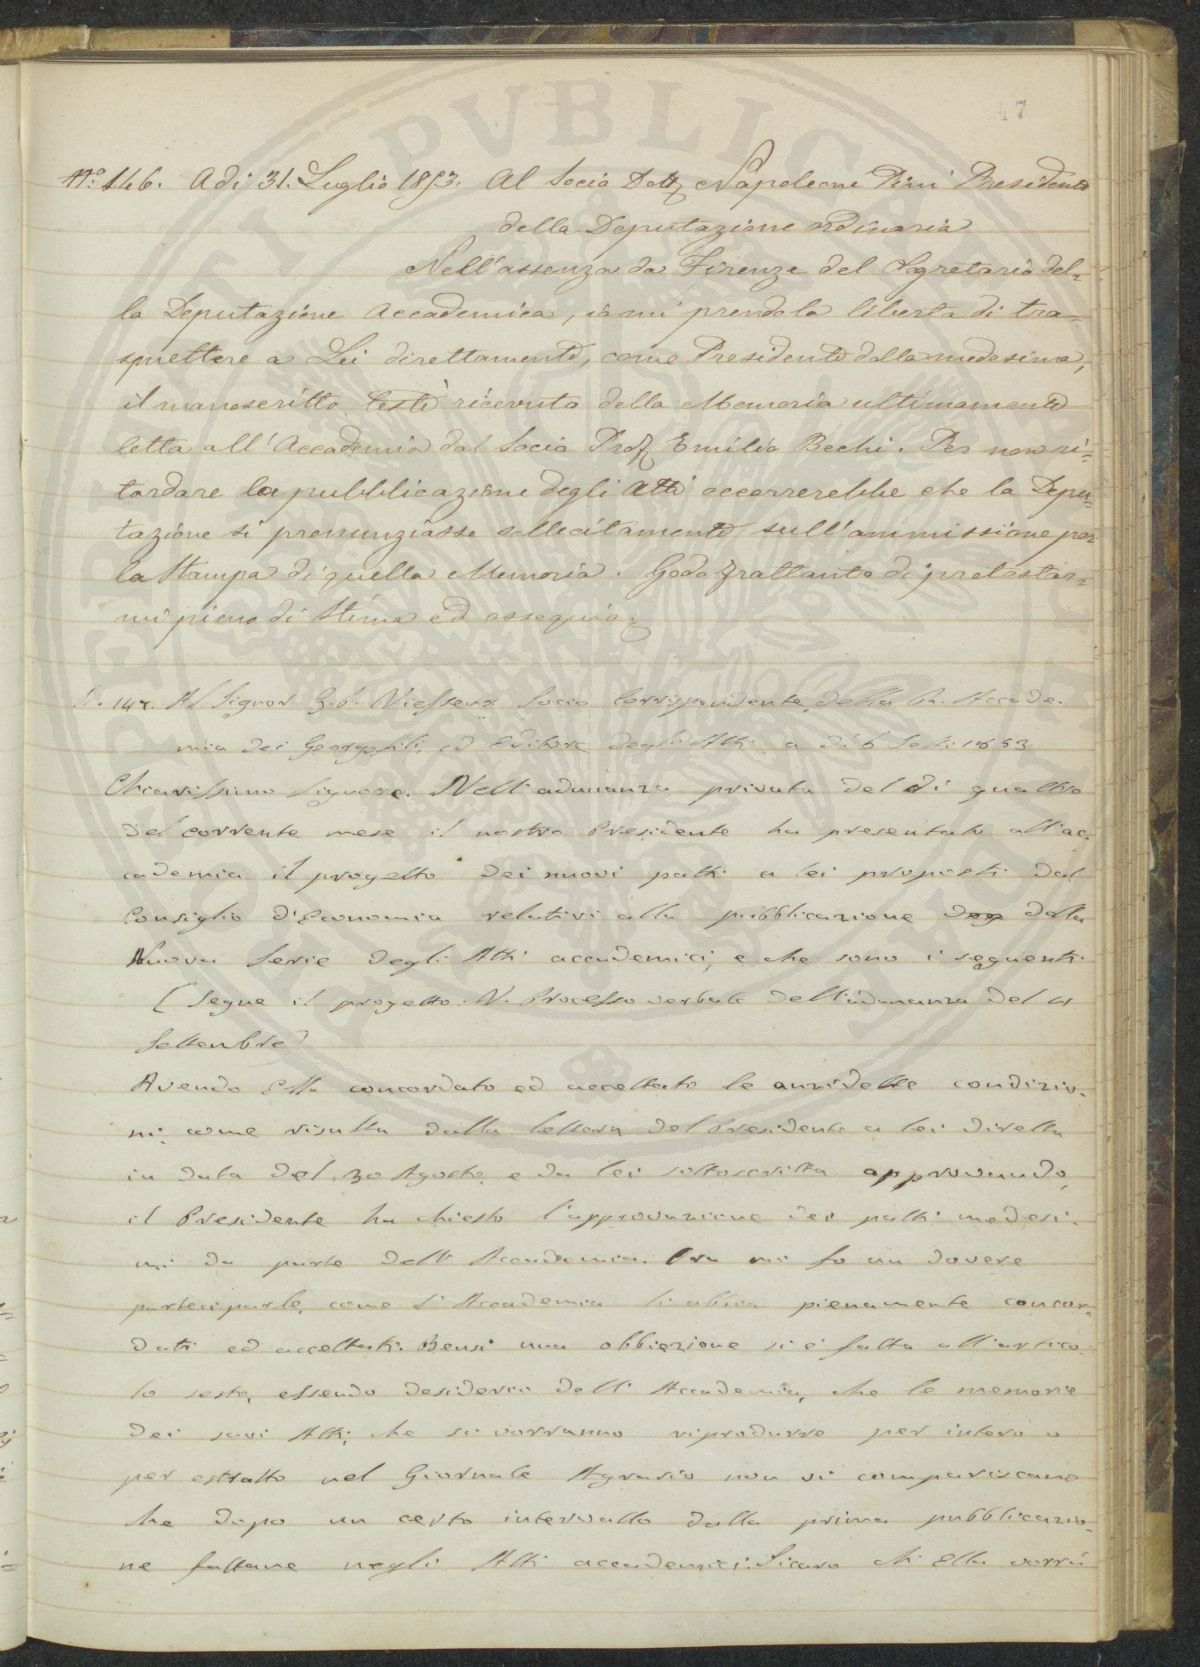 47
N.o 146. Adi 31. Luglio 1853. Al Socio Dott. Napoleone Pini Presidente
della Deputazione ordinaria
Nell'assenza da Firenze del Segretario del-
la Deputazione Accademica, io mi prendo la libertà di tra-
smettere a Lei direttamente, come Presidente della medesima,
il manoscritto testè ricevuto della Memoria ultimamente
letta all'Accademia dal Socio Prof. Emilio Bechi. Per non ri-
tardare la pubblicazione degli Atti occorrerebbe che la Depu-
tazione si pronunziasse sollecitamente sull'ammissione per
la Stampa di quella Memoria. Godo frattanto di protestar-
mi pieno di stima ed ossequio.
N. 147. Al Signor G. P. Vieusseux Socio Corrispondente della R. Accade-
mia dei Georgofili, ed Editore degli Atti a dì 6 Sett. 1853
Chiarissimo Signore. Nell'adunanza privata del dì quattro
del corrente mese il nostro Presidente ha presentato all'ac-
cademia il progetto dei nuovi patti a lei proposti dal
Consiglio d'Economia relativi alla pubblicazione della
Nuova Serie degli Atti accademici, e che sono i seguenti
(Segue il progetto: V. Processo verbale dell'adunanza del 4
Settembre)
Avendo Ella concordato ed accettato le anzidette condizio-
ni, come risulta dalla lettera del Presidente a lei diretta
in data del 30 Agosto, e da lei sottoscritta approvando,
il Presidente ha chiesto l'approvazione dei patti medesi-
mi da parte dell'Accademia. Ora mi fo un dovere
parteciparle, come l'Accademia li abbia pienamente concor-
dati ed accettati. Bensì una obbiezione si è fatta all'artico-
lo sesto, essendo desiderio dell'Accademia, che le memorie
dei suoi Atti, che si vorranno riprodurre per intero o
per estratto nel Giornale Agrario non vi compariscano
che dopo un certo intervallo dalla prima pubblicazio-
ne fattane negli Atti accademici. Sicuro ch'Ella vorrà
PVBLICA